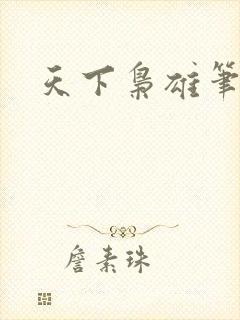 天下梟雄筆
詹素珠